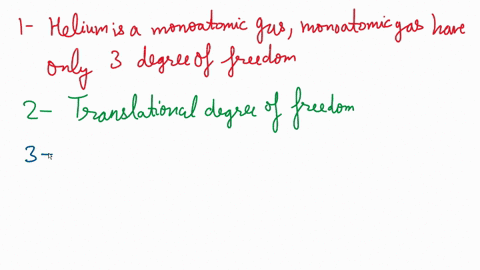 1- Helium is a monoatomic gas, monoatomic gas have
only 3 degree of freedom
2- Translational degree of freedom
3-